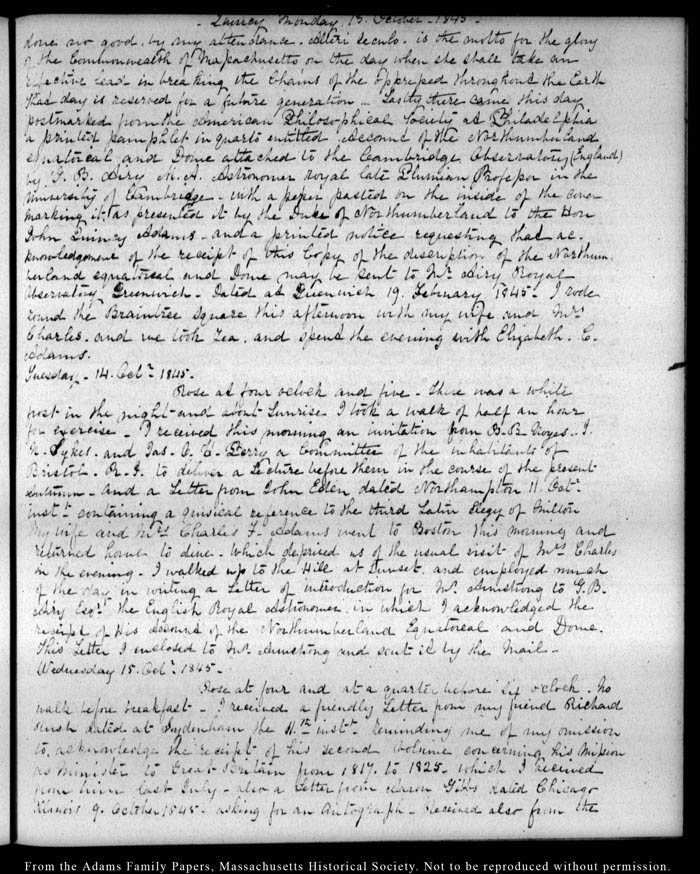 - Quincy Monday 13. October - 1845 -
done no good, by my attendance. Alteri seculo. is the motto for the glory
of the Commonwealth of Massachusetts on the day when she shall take an
effective lead in breaking the Chains of the oppressed throughout the Earth
that day is reserved for a future generation - Lastly there came this day
postmarked from the American Philosophical Society at Philadelphia
a printed pamphlet in quarto entitled. Account of the Northumberland
equatoreal and Dome attached to the Cambridge Observatory (England)
by G. B. Airy M. A. Astronomer royal late Plumian Professor in the
University of Cambridge - with a paper pasted on the inside of the cover
marking it, as presented it by the Duke of Northumberland to the Hon
John Quincy Adams - and a printed notice requesting that ac-
knowledgement of the receipt of this Copy of the description of the Northum
berland equatoreal and Dome may be sent to Mr. Airy Royal
Observatory. Greenwich - Dated at Greenwich 19. February 1845 - I rode
round the Braintree Square this afternoon with my wife and Mrs
Charles. and we took Tea. and spend the evening with Elizabeth. C.
Adams.
Tuesday - 14. Octr. 1845 -
Rose at four oclock and five - there was a white
frost in the night and about Sunrise I took a walk of half an hour
for exercise - I received this morning an invitation from B. B. Noyes. I.
N. Sykes. and Jas. C. Perry a Committee of the inhabitants of
Bristol. R. I. to deliver a Lecture before them in the course of the present
autumn - and a Letter from John Eden, dated Northampton 11. Octr.
instt. containing a quisical reference to the third Latin Elegy of Milton
My wife and Mrs Charles F. Adams went to Boston this morning and
returned home to dine. Which deprived us of the usual visit of Mrs Charles
in the evening - I walked up to the Hill at Sunset. and employed much
of the day in writing a Letter of introduction for Mr. Armstrong to G. B.
Airy Esqr. the English Royal Astronomer. in which I acknowledged the
receipt of His account of the Northumberland Equatoreal and Dome.
This Letter I enclosed to Mr. Armstrong and sent it by the Mail -
Wednesday 15. Octr. 1845 -
Rose at four and at a quarter before six o'clock. No
walk before breakfast - I received a friendly Letter from my friend Richard
Rush dated at Sydenham the 11th. instt. reminding me of my omission
to acknowledge the receipt of his second volume concerning his Mission
as Minister to Great-Britain from 1817. to 1825 - which I received
from him last July - also a Letter from Aaron Gibbs dated Chicago
Illinois 9. October 1845 - asking for an Autograph - received also from the
From the Adams Family Papers, Massachusetts Historical Society. Not to be reproduced without permission.